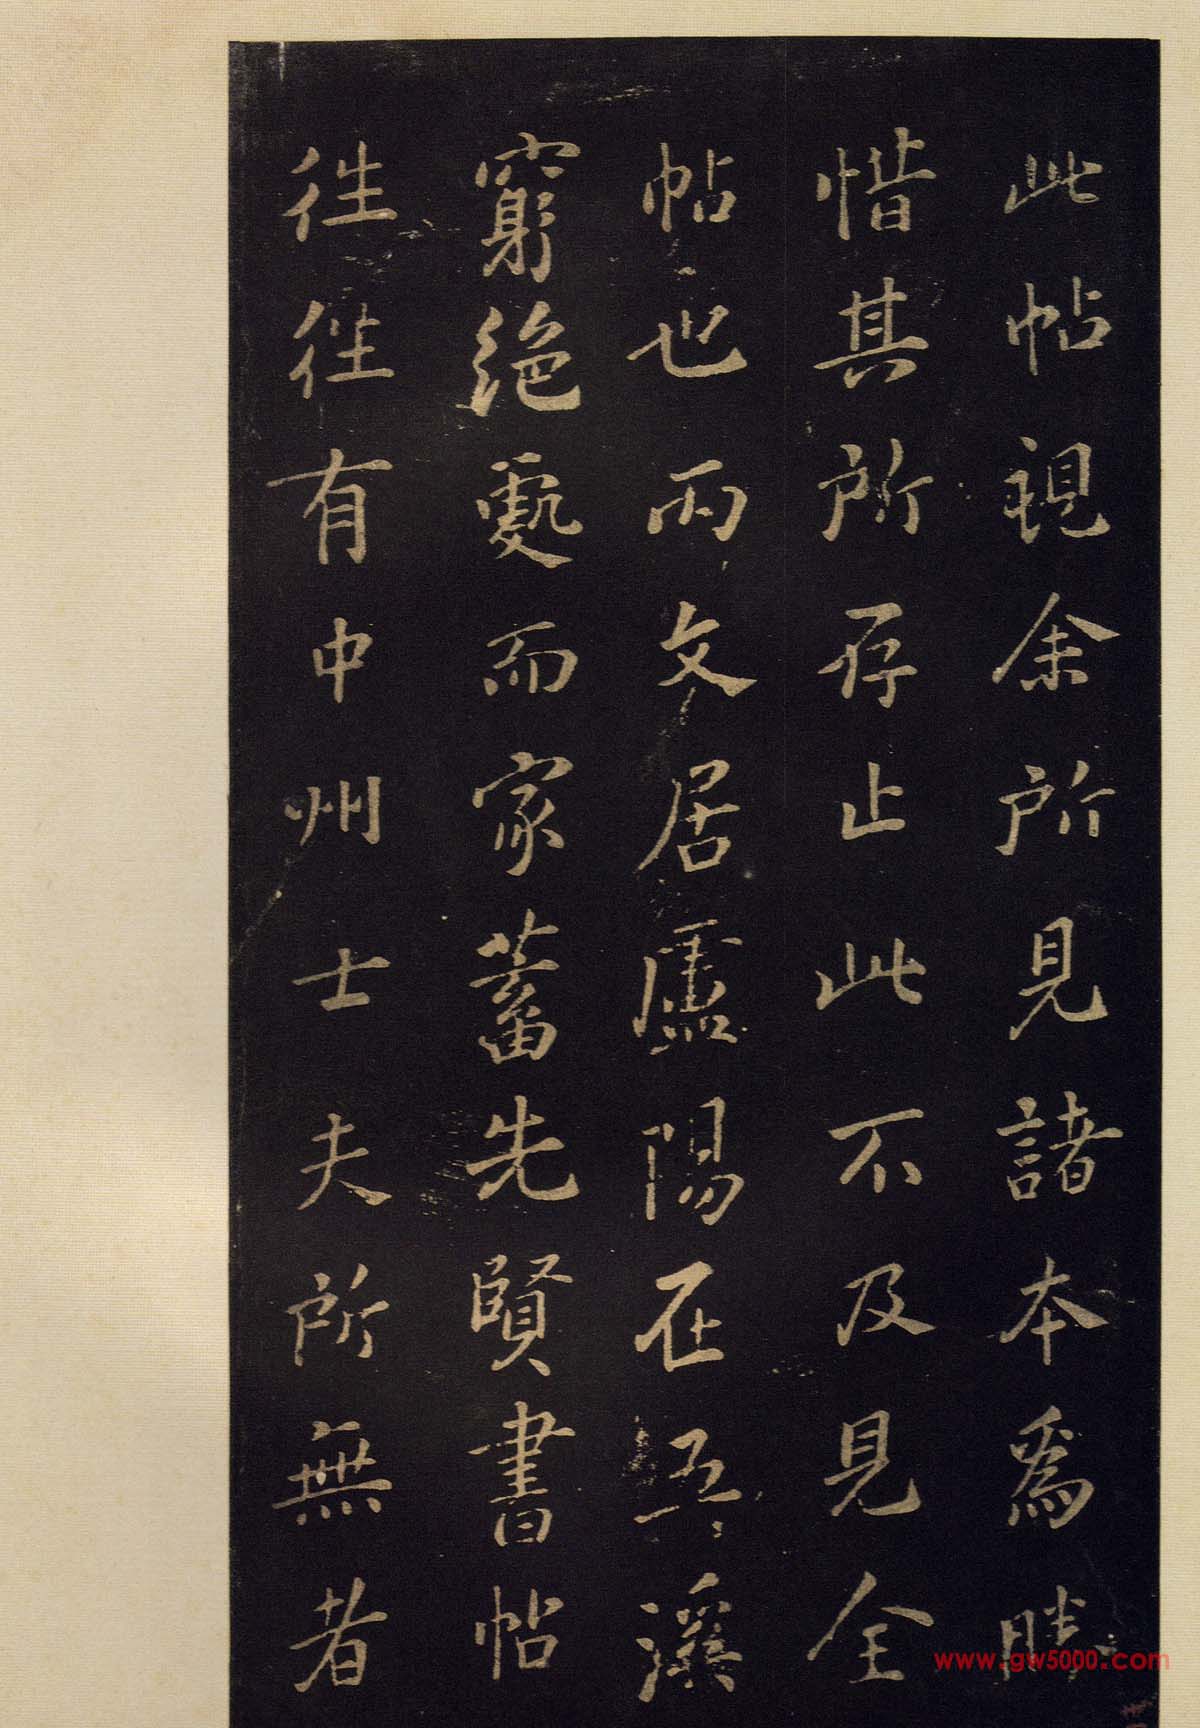 此帖視余所見諸本爲勝
惜其所存止此不及見全
帖也丙文居廬陽在五溪
窮絕處而家蓄先賢書帖
往往有中州士夫所無者
www.gw5000.com